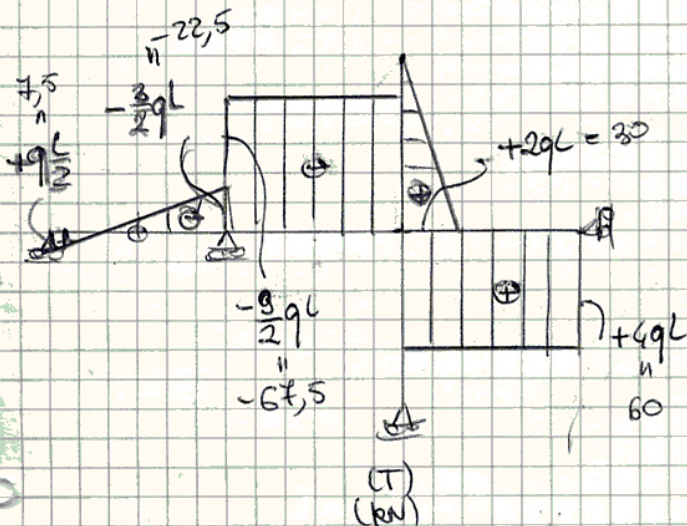 -22,5
"
7,5
"
-3/2 qL
+q L/2
+2qL = 30
⊖
⊕
⊕
⊖
⊕
-9/2 qL
"
-67,5
+4qL
"
60
(T)
(kN)